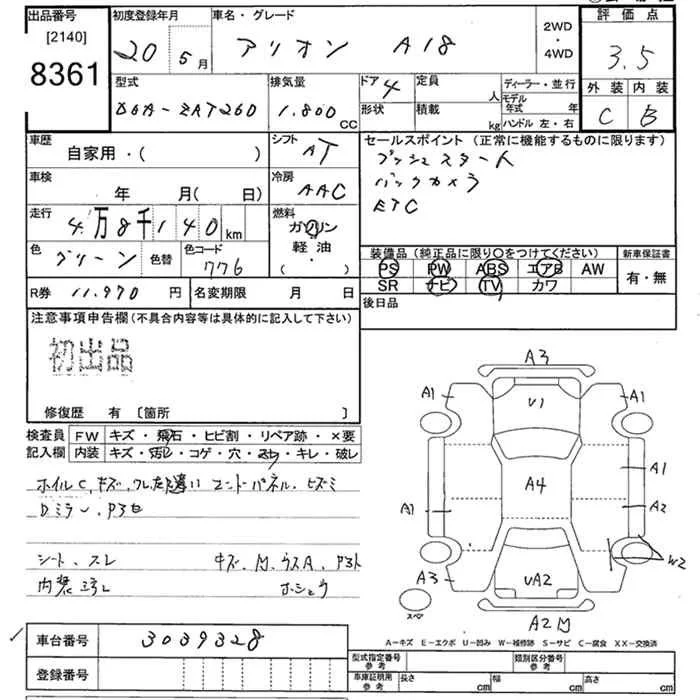 出品番号
[2140]
8361
初度登録年月
20 5月
車名・グレード
アリオン A18
2WD
・
4WD
評価点
3.5
外装 内装
C B
型式
DBA-ZRT260
排気量
1.800 CC
ドア 4
形状
定員
人
積載
kg
ディーラー・並行
モデル年式 年
ハンドル 左・右
車歴
自家用・( )
シフト
AT
セールスポイント (正常に機能するものに限ります)
プッシュスタート
バックカメラ
ETC
車検
年 月( 日)
冷房
AAC
走行
4万8千140 km
燃料
ガソリン
軽油・
( ・ )
色
グリーン
色替
色コード
776
装備品 (純正品に限り〇をつけてください)
PS PW ABS エアB AW
SR ナビ TV カワ
新車保証書
有・無
R券 11.970 円
名変期限 月 日
後日品
注意事項申告欄 (不具合内容等は具体的に記入して下さい)
初出品
修復歴 有 〔箇所 〕
検査員
記入欄
FW キズ・飛石・ヒビ割・リペア跡・×要
内装 キズ・汚レ・コゲ・穴・スレ・キレ・破レ
ホイルC、キズ、
エンドパネル・ヒズミ
Dミラー、
シート、スレ
キズ、M、ウスA、
内装 ヨゴレ
A3
A1 U1 A1
A1 A4 A1
A2
W2
A3 UA2
スペア
A2M
A-キズ E-エクボ U-凹み W-補修跡 S-サビ C-腐食 XX-交換済
車台番号 3039328
登録番号
型式指定番号
参考
類別区分番号
参考
車庫証明用
参考
長さ cm 幅 cm 高さ cm